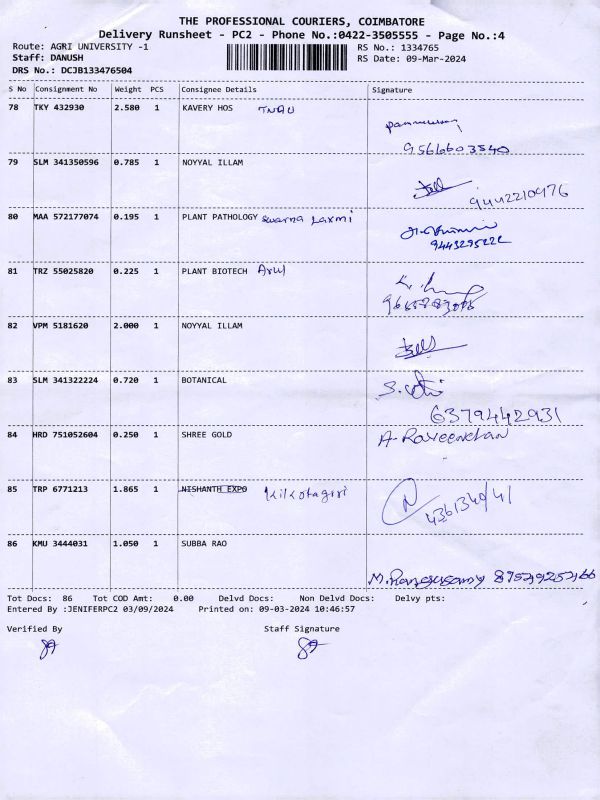 THE PROFESSIONAL COURIERS, COIMBATORE
Delivery Runsheet - PC2 - Phone No.:0422-3505555 - Page No.:4
Route: AGRI UNIVERSITY -1 RS No.: 1334765
Staff: DANUSH RS Date: 09-Mar-2024
DRS No.: DCJB133476504
S No Consignment No Weight PCS Consignee Details Signature
78 TKY 432930 2.580 1 KAVERY HOS TNAU
9566603540
79 SLM 341350596 0.785 1 NOYYAL ILLAM
9442210976
80 MAA 572177074 0.195 1 PLANT PATHOLOGY Swarna Laxmi
81 TRZ 55025820 0.225 1 PLANT BIOTECH Arul
82 VPM 5181620 2.000 1 NOYYAL ILLAM
83 SLM 341322224 0.720 1 BOTANICAL
6379442931
84 HRD 751052604 0.250 1 SHREE GOLD A. Raveendran
85 TRP 6771213 1.865 1 NISHANTH EXPO Kilkotagiri
86 KMU 3444031 1.050 1 SUBBA RAO
M. Rangusamy
Tot Docs: 86 Tot COD Amt: 0.00 Delvd Docs: Non Delvd Docs: Delvy pts:
Entered By :JENIFERPC2 03/09/2024 Printed on: 09-03-2024 10:46:57
Verified By Staff Signature